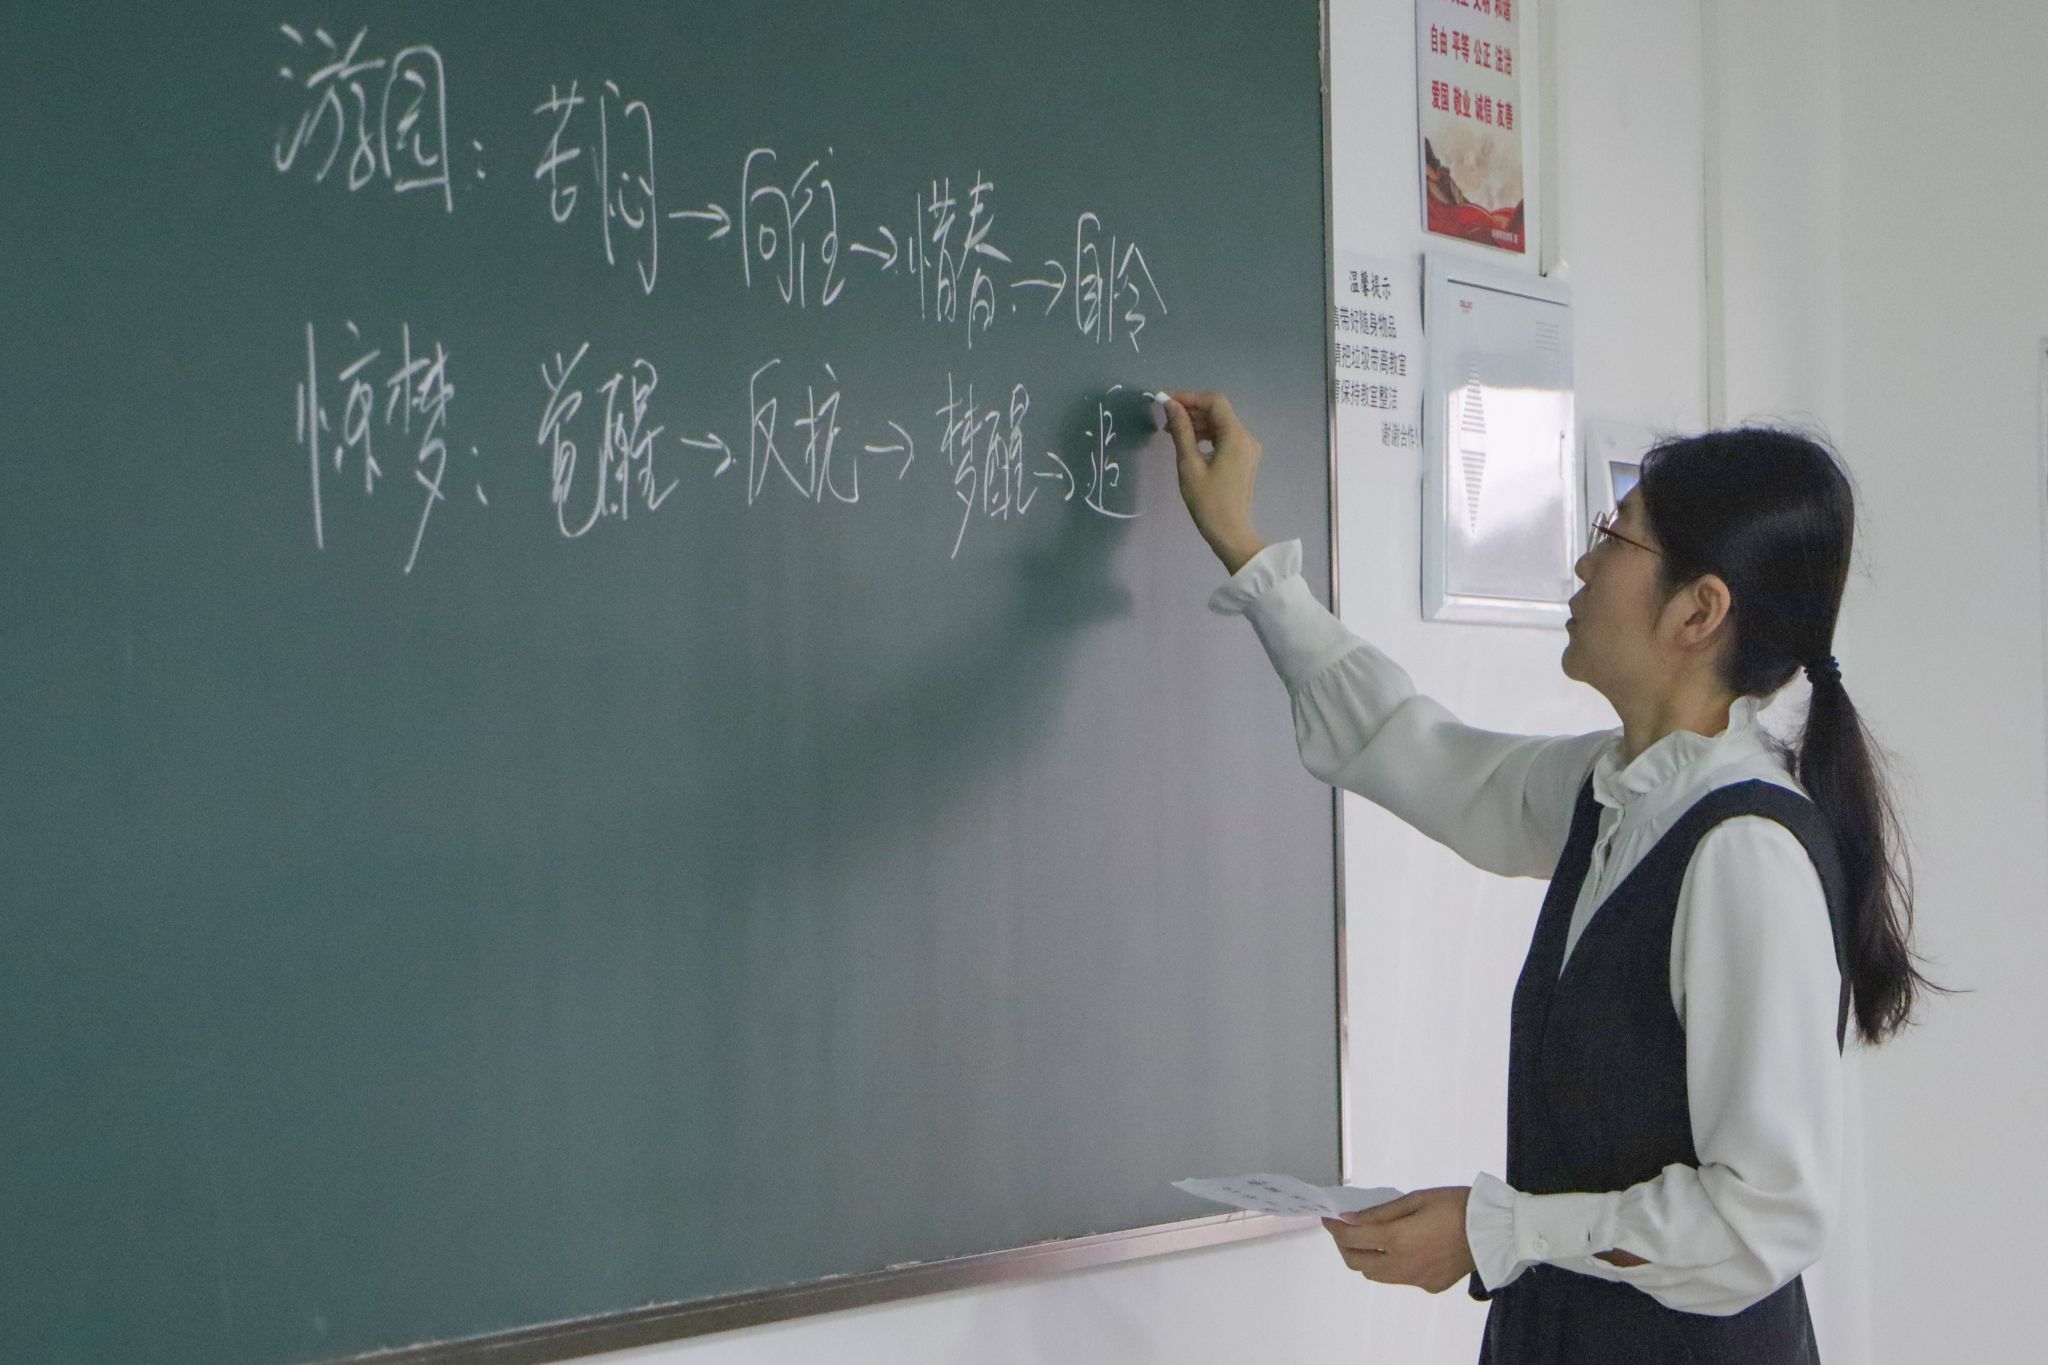 游园：苦闷→向往→惜春→自怜
惊梦：觉醒→反抗→梦醒→追
文明 和谐
自由 平等 公正 法治
爱国 敬业 诚信 友善
温馨提示
请带好随身物品
请把垃圾带离教室
请保持教室整洁
谢谢合作！